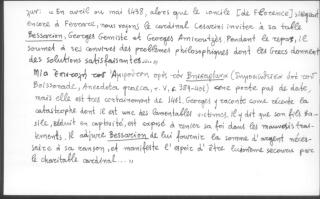 sur: « En avril ou mai 1438, alors que le concile [de Florence] siégeait
encore à Ferrare, nous voyons le cardinal Cesarini inviter à sa table
Bessarion, Georges Gemiste et Georges Amiroutzès. Pendant le repas, il
soumet à ses convives des problèmes philosophiques dont les Grecs donnent
des solutions satisfaisantes....»
Μία ἐπιστολή τοῦ Ἀμιρούτζη πρός τόν Βησσαρίωνα (δημοσιεύτηκε ἀπό τόν
Boissonade, Anecdota graeca, τ. V, σ. 389-401) «ne porte pas de date,
mais elle est très certainement de 1461. Georges y raconte comme récente la
catastrophe dont il est une des lamentables victimes. Il y dit que son fils Ba-
sile, réduit en captivité, est exposé à renier sa foi dans les mauvais trai-
tements. Il adjure Bessarion de lui fournir la somme d'argent néces-
saire à sa rançon, et manifeste l'espoir d'être lui-même secouru par
le charitable cardinal...»